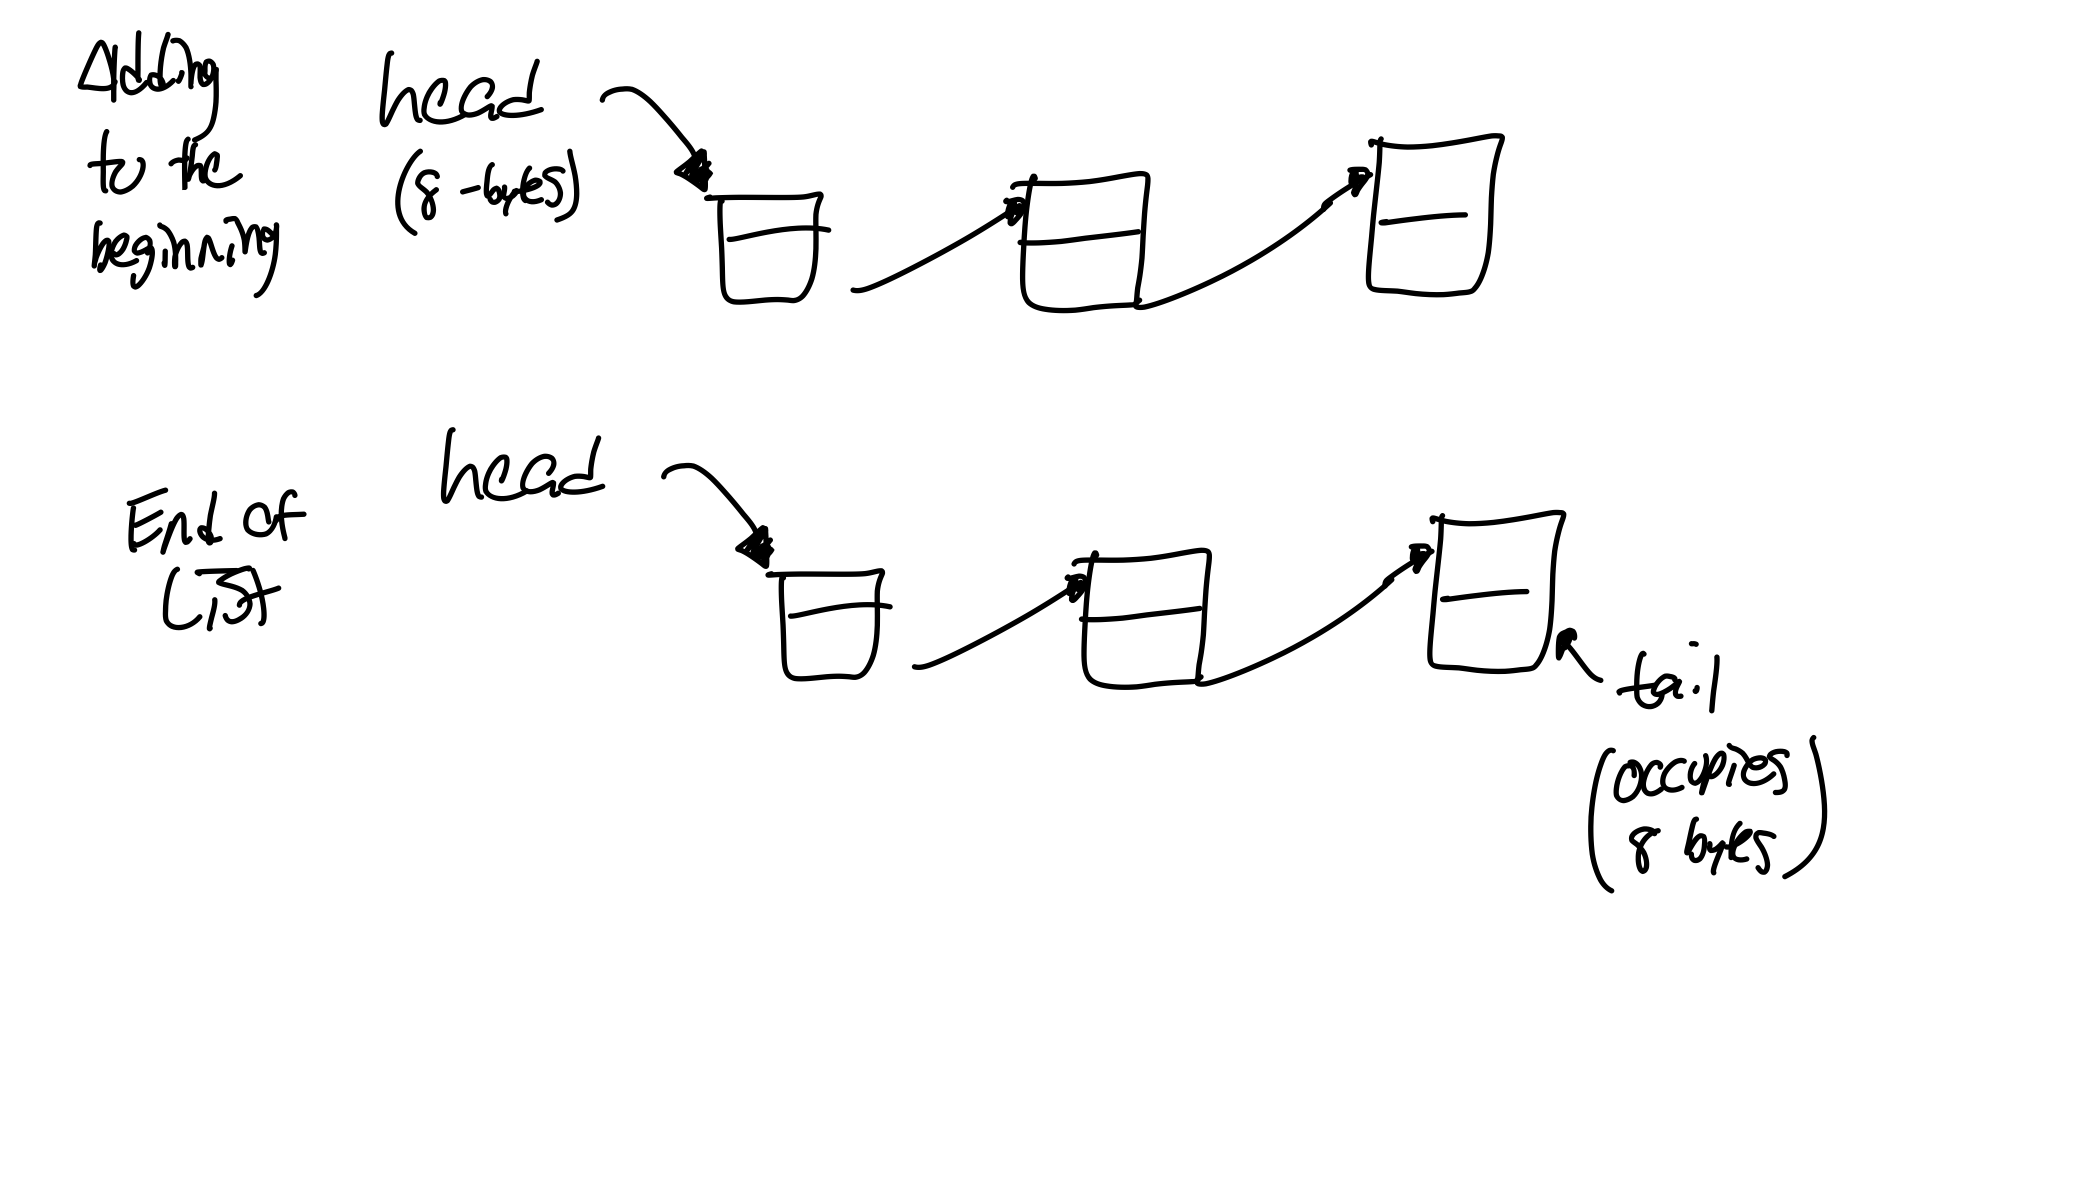 Adding
to the
beginning
head
(8-bytes)
End of
List
head
tail
(occupies
8 bytes)